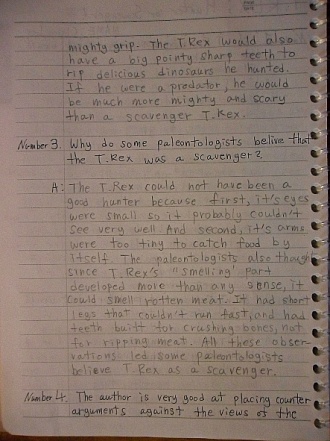 mighty grip. The T.Rex would also
have a big pointy sharp teeth to
rip delicious dinosaurs he hunted.
If he were a predator, he would
be much more mighty and scary
than a scavenger T.Rex.
Number 3. Why do some paleontologists belive that
the T.Rex was a scavenger?
A: The T.Rex could not have been a
good hunter because first, it's eyes
were small so it probably couldn't
see very well. And second, it's arms
were too tiny to catch food by
itself. The paleontologists also though
since T.Rex's "smelling" part
developed more than any sense, it
could smell rotten meat. It had short
legs that couldn't run fast, and had
teeth built for crushing bones, not
for ripping meat. All these obser-
vations led some paleontologists
believe T.Rex as a scavenger.
Number 4. The author is very good at placing counter
arguments against the views of the